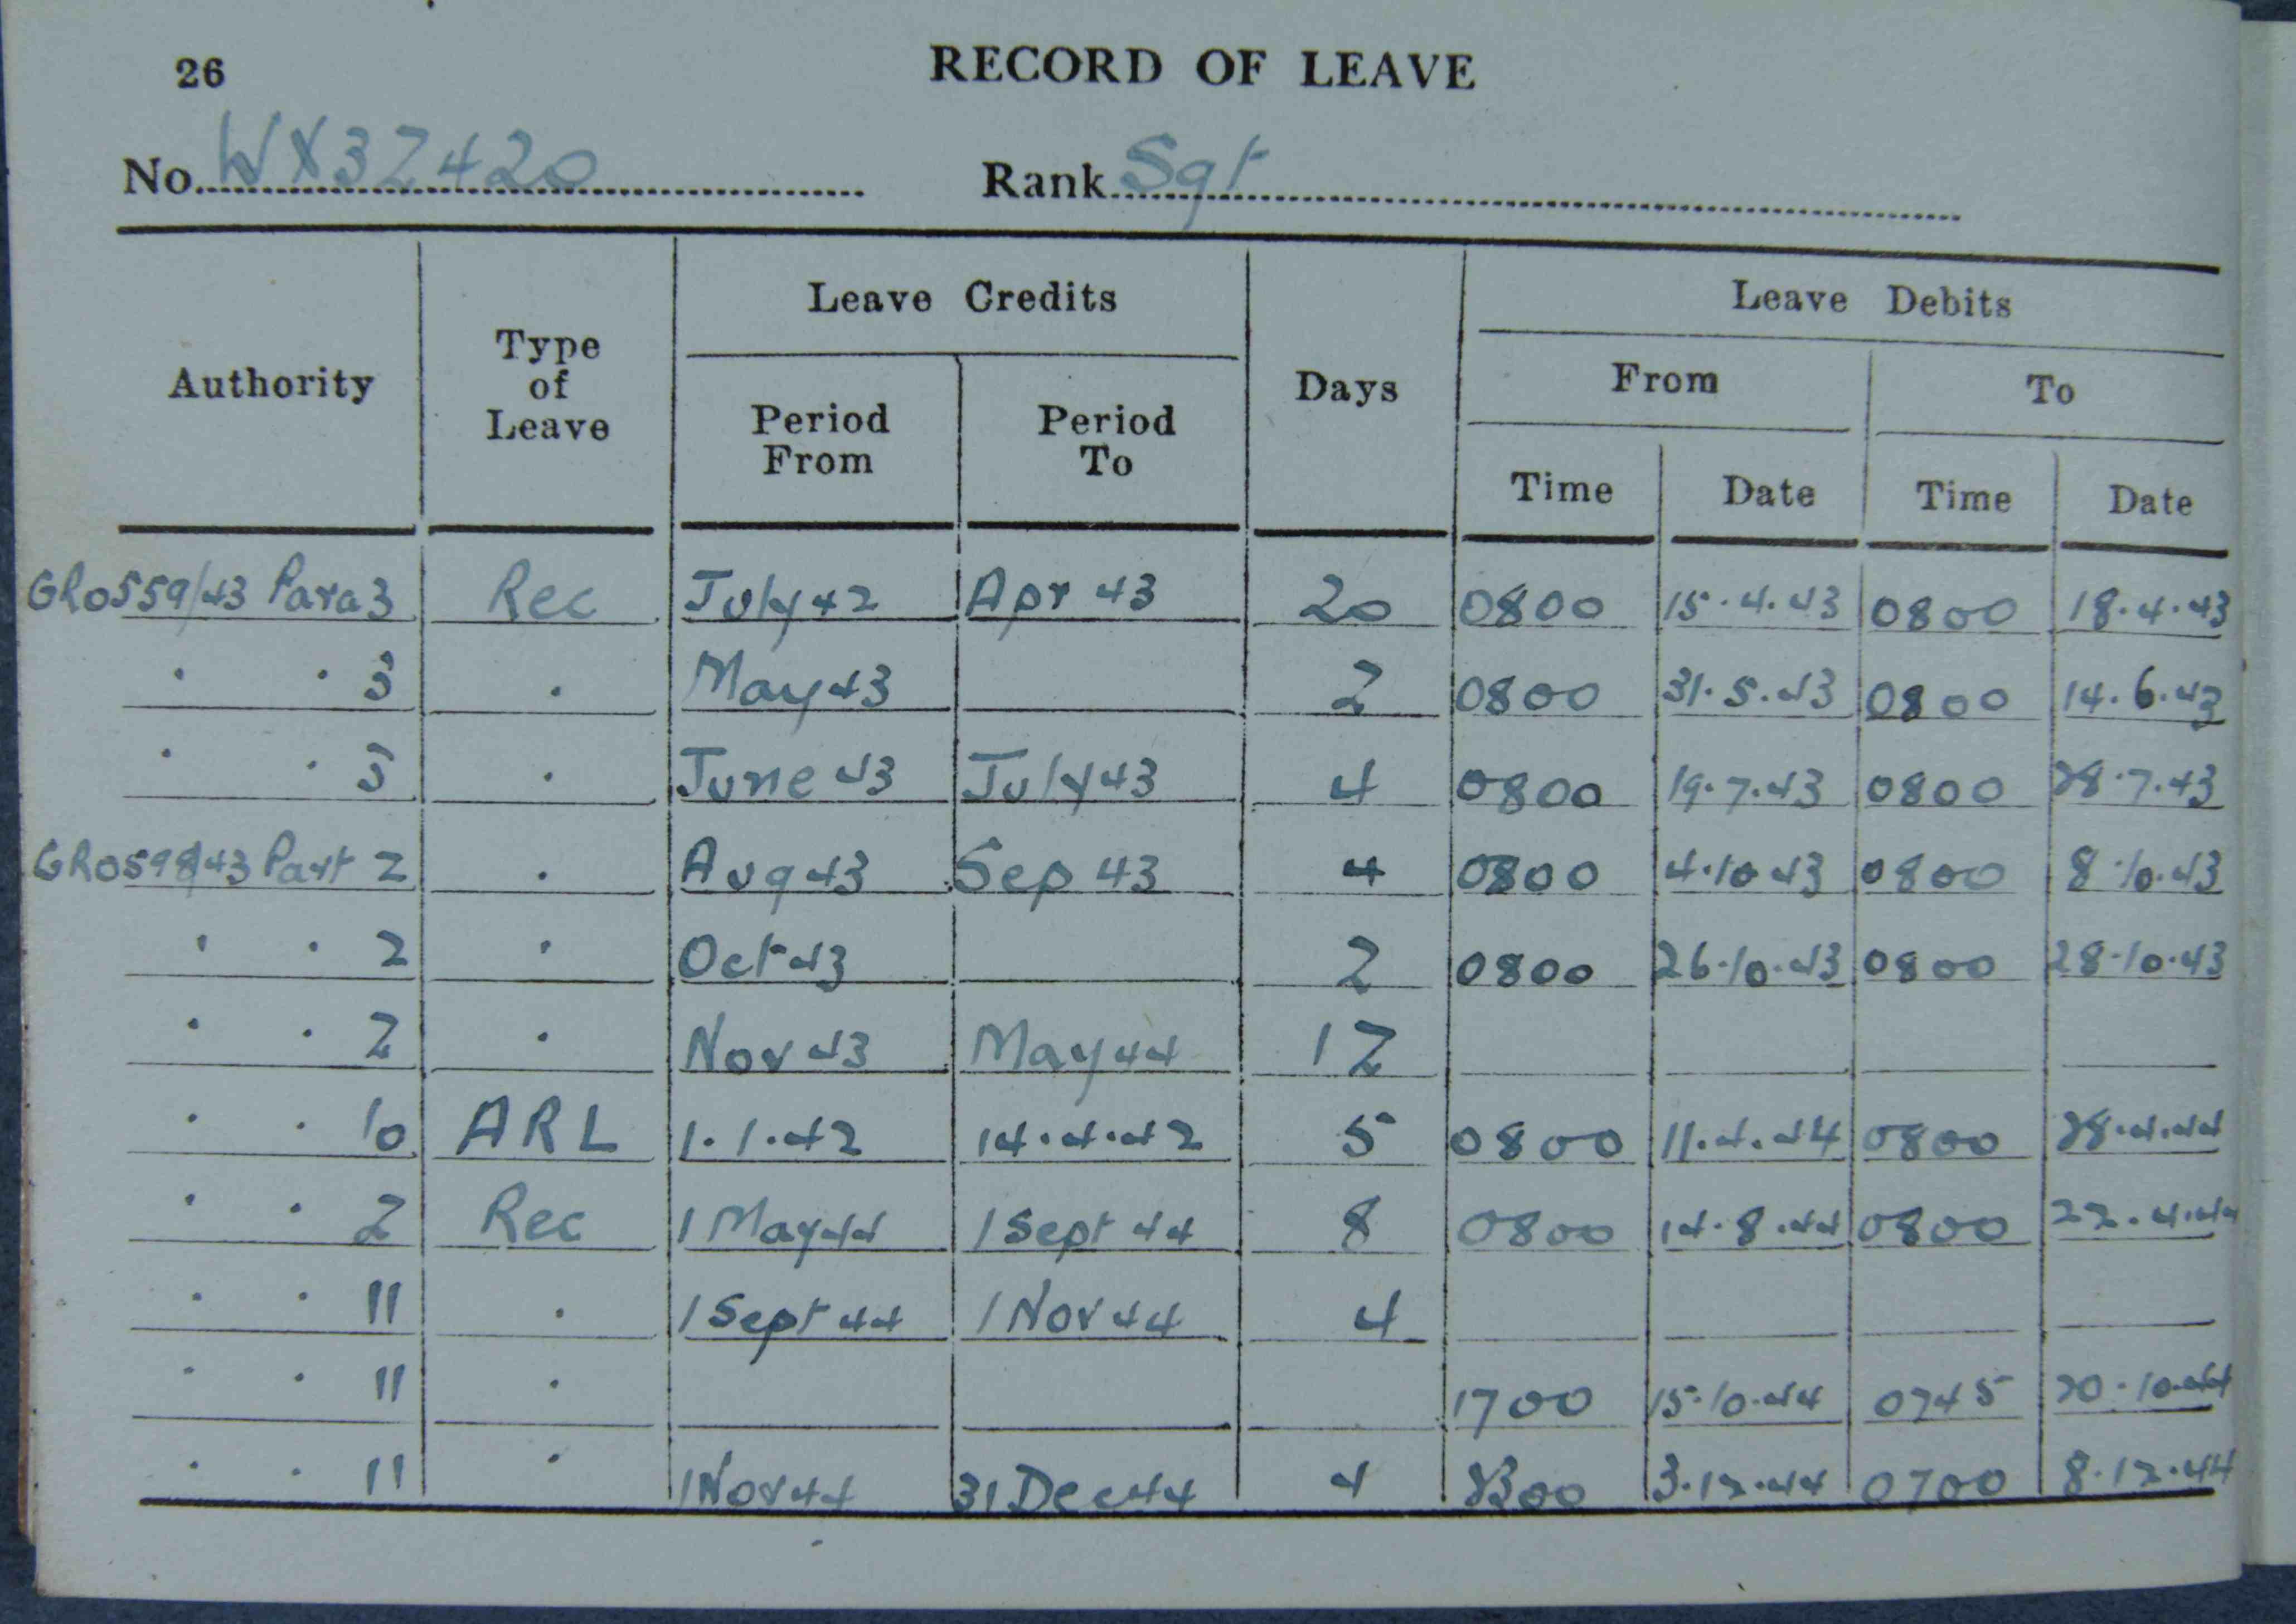 26
RECORD OF LEAVE
No. WX32420 Rank Sgt
Leave Credits Leave Debits
Authority Type of Leave Period From Period To Days From To
Time Date Time Date
GRO559/43 Para 3 Rec July 42 Apr 43 20 0800 15.4.43 0800 18.4.43
. . 3 . May 43 2 0800 31.5.43 0800 14.6.43
. . 3 . June 43 July 43 4 0800 19.7.43 0800 28.7.43
GRO598/43 Part 2 . Aug 43 Sep 43 4 0800 4.10.43 0800 8.10.43
. . 2 . Oct 43 2 0800 26.10.43 0800 28.10.43
. . 2 . Nov 43 May 44 12
. . 10 ARL 1.1.42 14.4.42 5 0800 11.4.44 0800 28.4.44
. . 2 Rec 1 May 44 1 Sept 44 8 0800 14.8.44 0800 22.4.44
. . 11 . 1 Sept 44 1 Nov 44 4
. . 11 . 1700 15.10.44 0745 20.10.44
. . 11 . 1 Nov 44 31 Dec 44 4 3.12.44 0700 8.12.44